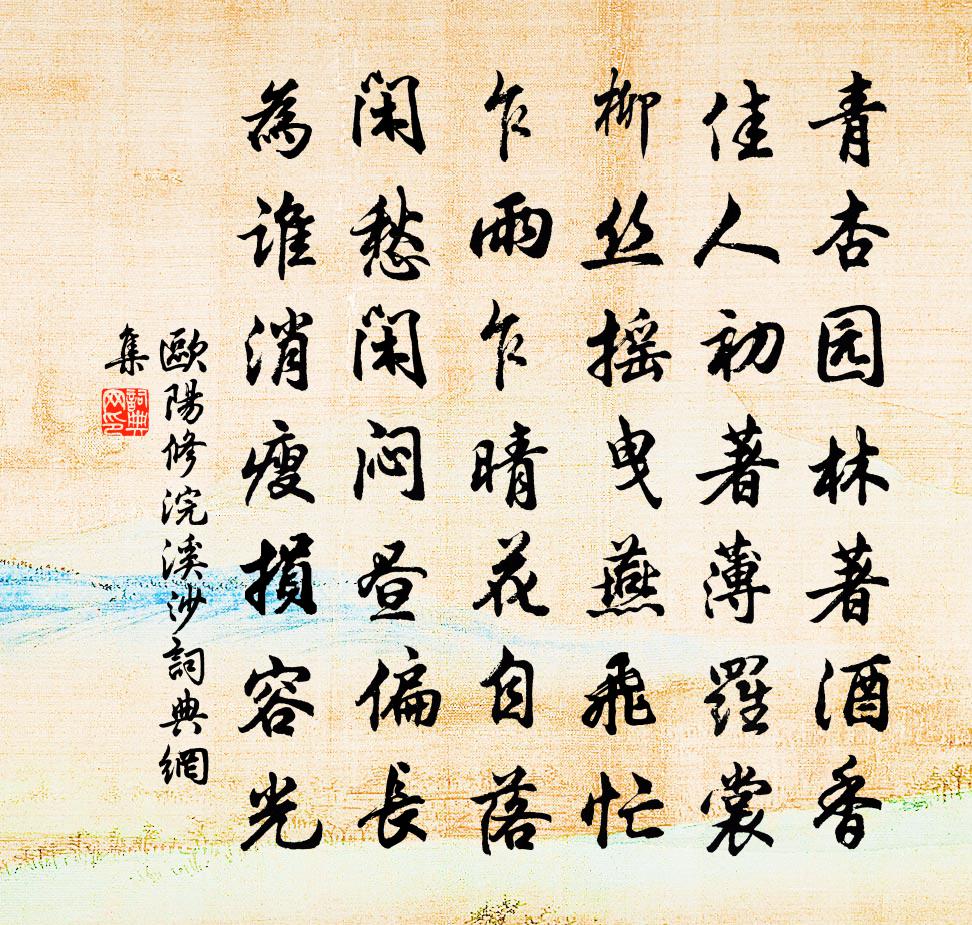 青杏园林著酒香
佳人初著薄羅裳
柳丝摇曳燕飛忙
乍雨乍晴花自落
闲愁闲闷昼偏長
為谁消瘦損容光
歐陽修浣溪沙詞典網
集
詞典
网印